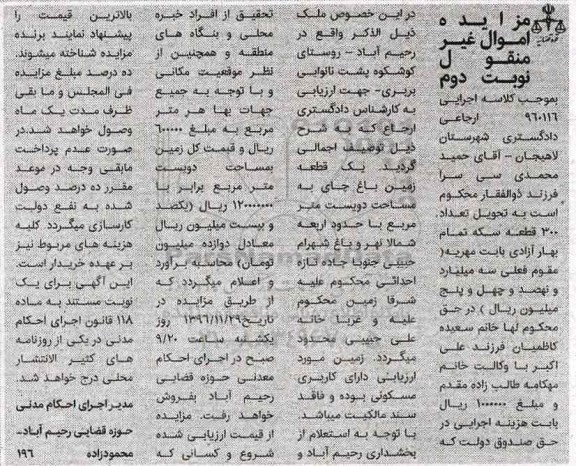 مزایده
اموال غیر
منقول
نوبت دوم
بموجب کلاسه اجرایی
۹۶۰۱۱۶ ارجاعی
دادگستری شهرستان
لاهیجان – آقای حمید
محمدی سی سرا
فرزند ذوالفقار محکوم
است به تحویل تعداد
۳۰۰ قطعه سکه تمام
بهار آزادی بابت مهریه(
مقوم فعلی سه میلیارد
و نهصد و چهل و پنج
میلیون ریال ) در حق
محکوم لها خانم سعیده
کاظمیان فرزند علی
اکبر با وکالت خانم
مهکامه طالب زاده مقدم
و مبلغ ۱۰۰۰۰۰۰ ریال
بابت هزینه اجرایی در
حق صندوق دولت که
در این خصوص ملک
ذیل الذکر واقع در
رحیم آباد – روستای
کوشکوه پشت نانوایی
بربری– جهت ارزیابی
به کارشناس دادگستری
ارجاع که به شرح
ذیل توصیف اجمالی
گردید. یک قطعه
زمین باغ چای به
مساحت دویست متر
مربع با حدود اربعه
شمالا نهر و باغ شهرام
حبیبی جنوبا جاده تازه
احداثی محکوم علیه
شرقا زمین محکوم
علیه و غربا خانه
علی حبیبی محدود
میگردد. زمین مورد
ارزیابی دارای کاربری
مسکونی بوده و فاقد
سند مالکیت میباشد.
با توجه به استعلام از
بخشداری رحیم آباد و
تحقیق از افراد خبره
محلی و بنگاه های
منطقه و همچنین از
نظر موقعیت مکانی
و با توجه به جمیع
جهات بها هر متر
مربع به مبلغ ۶۰۰۰۰۰
ریال و قیمت کل زمین
بمساحت دویست
متر مربع برابر با
۱۲۰۰۰۰۰۰۰ ریال (یکصد
و بیست میلیون ریال
معادل دوازده میلیون
تومان) محاسبه برآورد
و اعلام میگردد که
از طریق مزایده در
تاریخ۱۳۹۶/۱۱/۲۹ روز
یکشنبه ساعت ۹/۲۰
صبح در اجرای احکام
معدنی حوزه قضایی
رحیم آباد بفروش
خواهد رفت. مزایده
از قیمت ارزیابی شده
شروع و کسانی که
بالاترین قیمت را
پیشنهاد نمایند برنده
مزایده شناخته میشوند.
ده درصد مبلغ مزایده
فی المجلس و ما بقی
ظرف مدت یک ماه
وصول خواهد شد.در
صورت عدم پرداخت
مابقی وجه در موعد
مقرر ده درصد وصول
شده به نفع دولت
کارسازی میگردد کلیه
هزینه های مربوط نیز
بر عهده خریدار است.
این آگهی برای یک
نوبت مستند به ماده
۱۱۸ قانون اجرای احکام
مدنی در یکی از روزنامه
های کثیر الانتشار
محلی درج خواهد شد.
مدیر اجرای احکام مدنی
حوزه قضایی رحیم آباد–
محمودزاده ۱۹۶